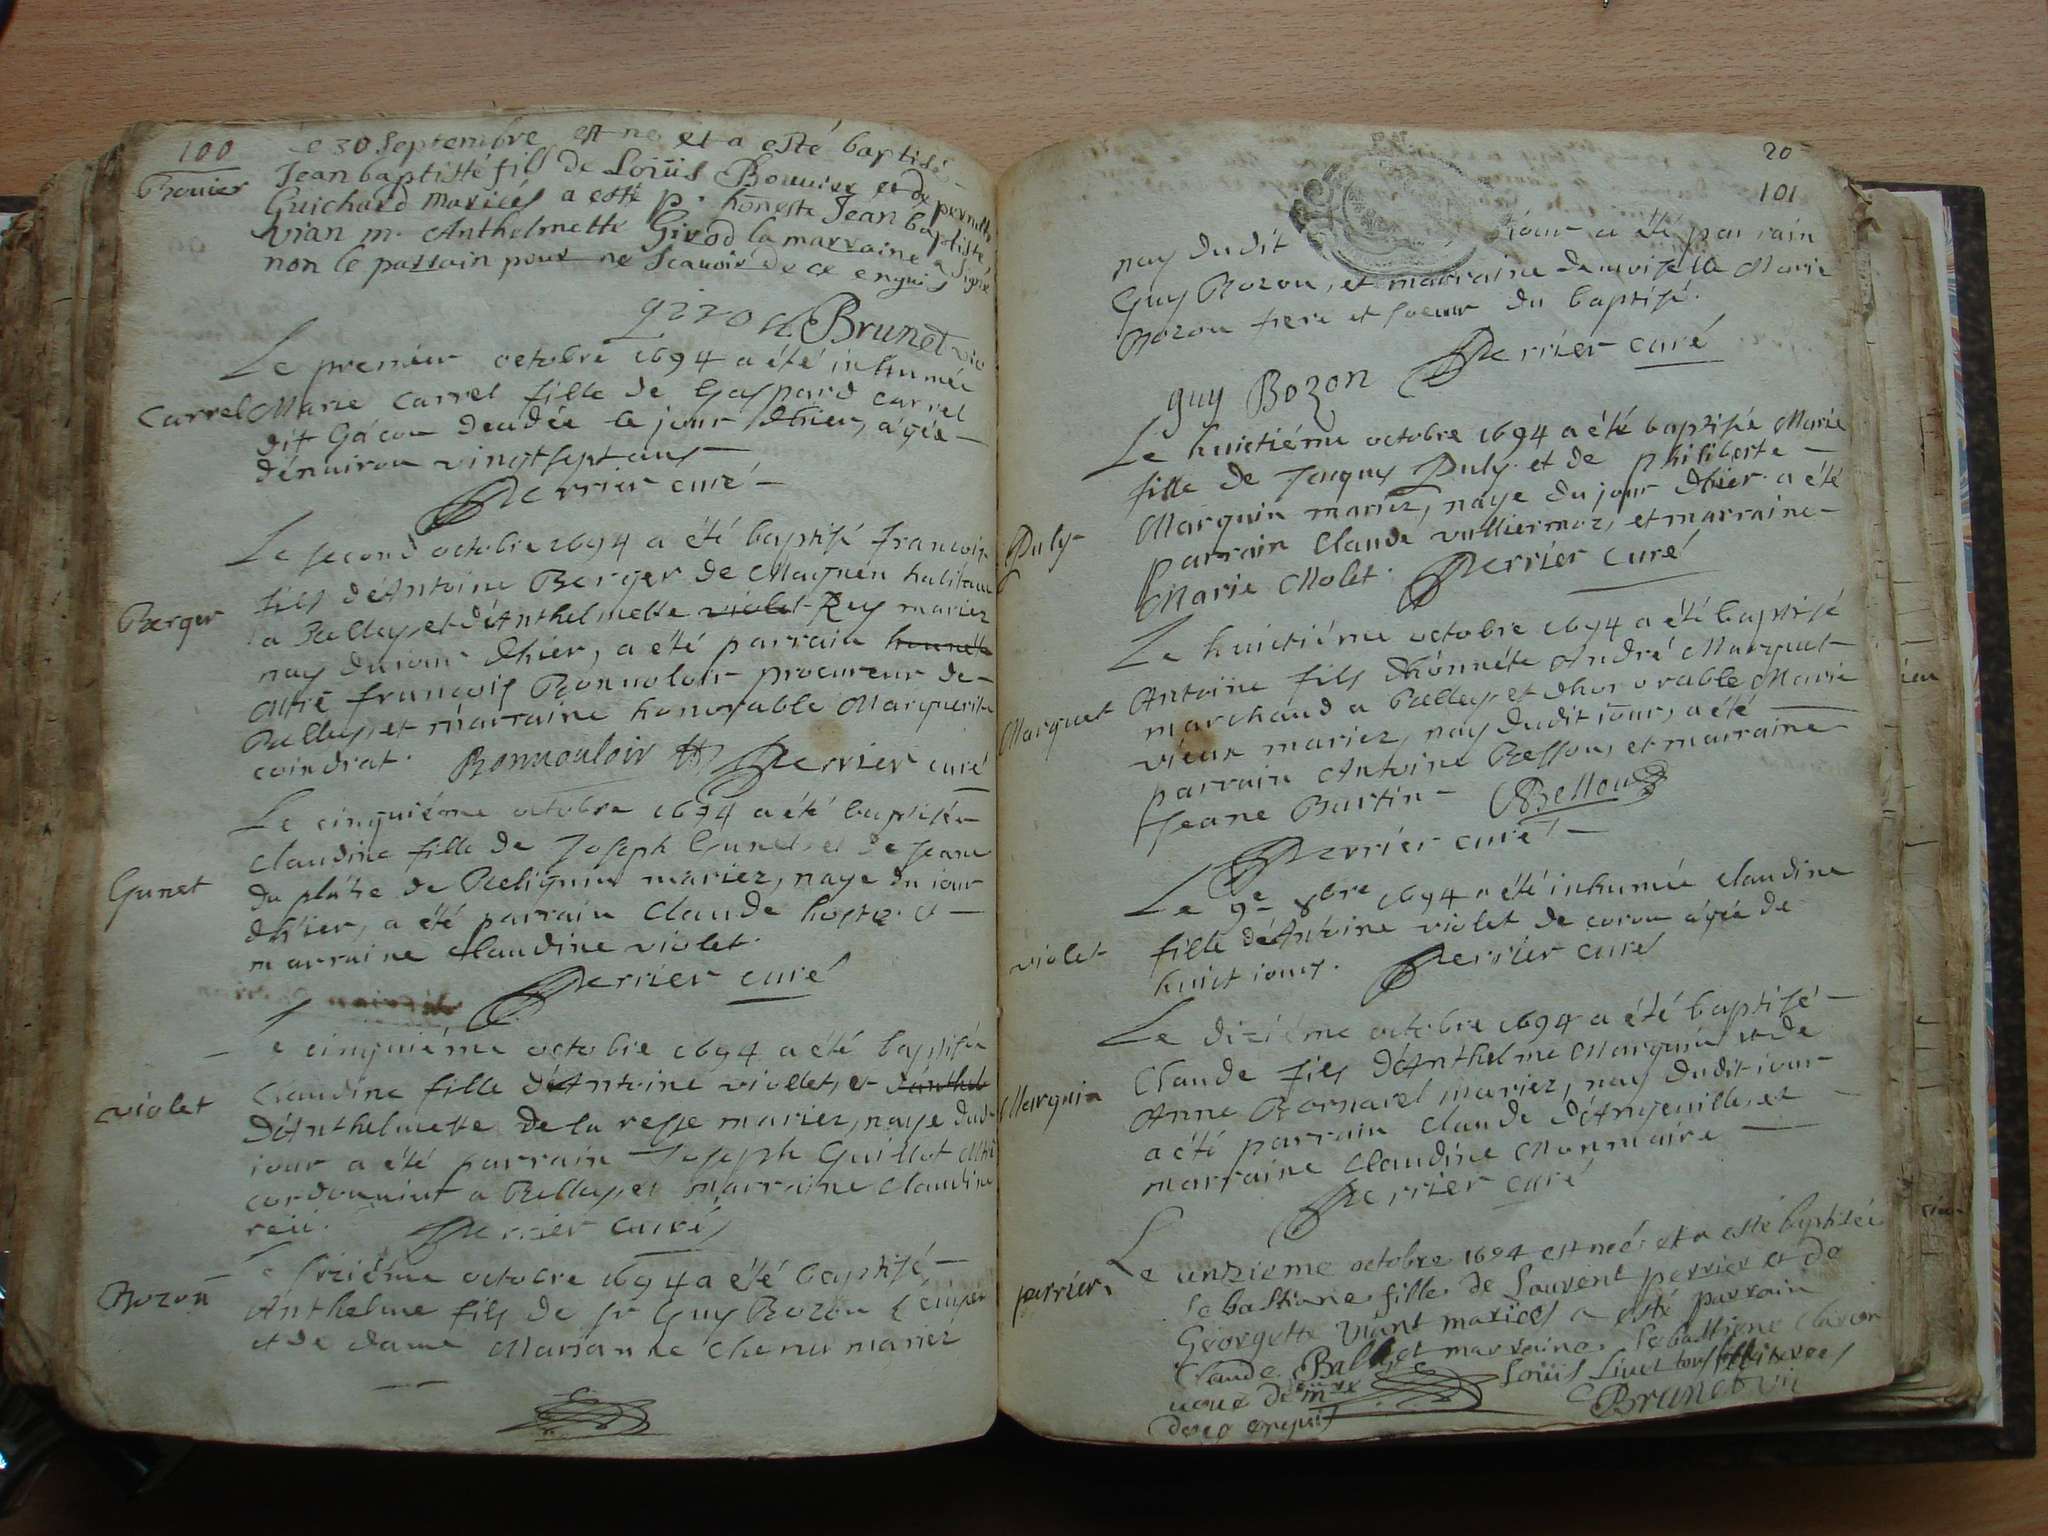 100
Bouier
Le 30 Septembre est né et a esté baptisé
Jean baptiste fils de Loüis Bouuier et de pernette
Guichard mariés a esté p. honeste Jean baptiste
vian m. Anthelmette Girod la marraine a signé
non le parrain pour ne scauoir de ce enquis
girod Brunet vic
Carrel
Le premier octobre 1694 a été inhumée
Marie Carrel fille de Gaspard Carrel
dit Gacon decedée le jour d'hier, agée
d'enuiron vingt sept ans
Perrier curé
Berger
Le second octobre 1694 a été baptisé francois
fils d'Antoine Berger de Magnen habitant
a Belley, et d'Anthelmette violet Rey mariez
nay du iour d'hier, a été parrain honneste
Mre francois Bonnouloir procureur de
Belley, et marraine honnorable Marguerite
coindrat. Bonnouloir Perrier curé
Gunet
Le cinquiéme octobre 1694 a été baptisée
claudine fille de Joseph Gunet, et de Jeane
du plâtre de Beligneu mariez, naye du iour
d'hier, a été parrain Claude et
marraine Claudine violet.
Perrier curé
violet
Le cinquiéme octobre 1694 a été baptisée
Claudine fille d'Antoine viollet, et d'Anthel
d'Anthelmette de la resse mariez, naye dudit
iour a été parrain Joseph Guillot Mtre
cordonnier a Belley, et marraine Claudine
reii. Perrier curé
Bozon
Le sixiéme octobre 1694 a été baptisé
Anthelme fils de sr Guy Bozon
et de dame Marianne Chenu mariez
20
101
nay dudit iour a été parrain
Guy Bozon, et marraine demoiselle Marie
Bozon frere et soeur du baptisé.
Perrier curé
guy Bozon
Puly
Le huictiéme octobre 1694 a été baptisée Marie
fille de Jacques Puly et de philiberte
Marquin mariez, naye du jour d'hier a été
parrain Claude vulliermoz, et marraine
Marie Molet. Perrier curé
Marquet
Le huictiéme octobre 1694 a été baptisé
Antoine fils d'honnéte André Marquet
marchand a Belley, et d'honorable Marie
vieux mariez, nay dudit iour, a été
parrain Antoine Besson, et marraine
Jeane Burtin
Perrier curé
violet
Le 9e 8bre 1694 a été inhumée Claudine
fille d'Antoine violet de coron agée de
huict iours. Perrier curé
Marquin
Le diziéme octobre 1694 a été baptisé
Claude fils d'Anthelme Marquin et de
Anne Bornarel mariez, nay dudit iour
a été parrain Claude d'Angeuille, et
marraine Claudine Monmaire
Perrier curé
perrier
Le unzieme octobre 1694 est née et a esté baptisée
sebastiane fille de Laurent perrier et de
Georgette Viant mariés a esté parrain
Claude Ballet marraine sebastiane
Loüis Liuet tous illiterés
de ce enquis Brunet vic